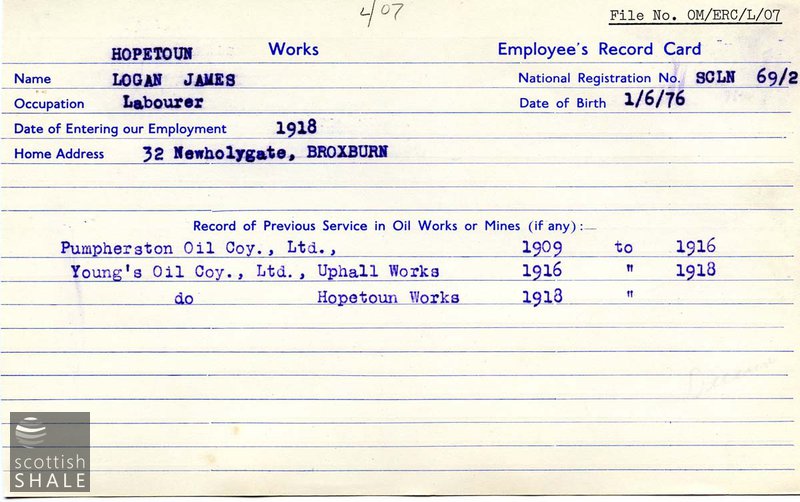 4/07
File No. OM/ERC/L/07
HOPETOUN Works Employee's Record Card
Name LOGAN JAMES National Registration No. SCLN 69/2
Occupation Labourer Date of Birth 1/6/76
Date of Entering our Employment 1918
Home Address 32 Newholygate, BROXBURN
Record of Previous Service in Oil Works or Mines (if any):—
Pumpherston Oil Coy., Ltd., 1909 to 1916
Young's Oil Coy., Ltd., Uphall Works 1916 " 1918
do Hopetoun Works 1918 "
scottish
SHALE